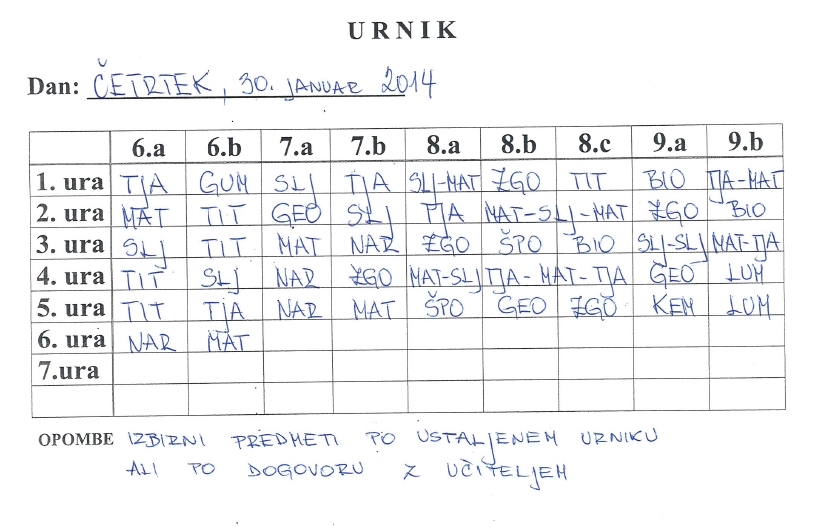 URNIK
Dan: ČETRTEK, 30. JANUAR 2014
6.a 6.b 7.a 7.b 8.a 8.b 8.c 9.a 9.b
1. ura TJA GUM SLJ TJA SLJ-MAT ZGO TIT BIO TJA-MAT
2. ura MAT TIT GEO SLJ TJA MAT-SLJ-MAT ZGO BIO
3. ura SLJ TIT MAT NAR ZGO ŠPO BIO SLJ-SLJ MAT-TJA
4. ura TIT SLJ NAR ZGO MAT-SLJ TJA-MAT-TJA GEO LUM
5. ura TIT TJA NAR MAT ŠPO GEO ZGO KEM LUM
6. ura NAR MAT
7.ura
OPOMBE IZBIRNI PREDMETI PO USTALJENEM URNIKU
ALI PO DOGOVORU Z UČITELJEM